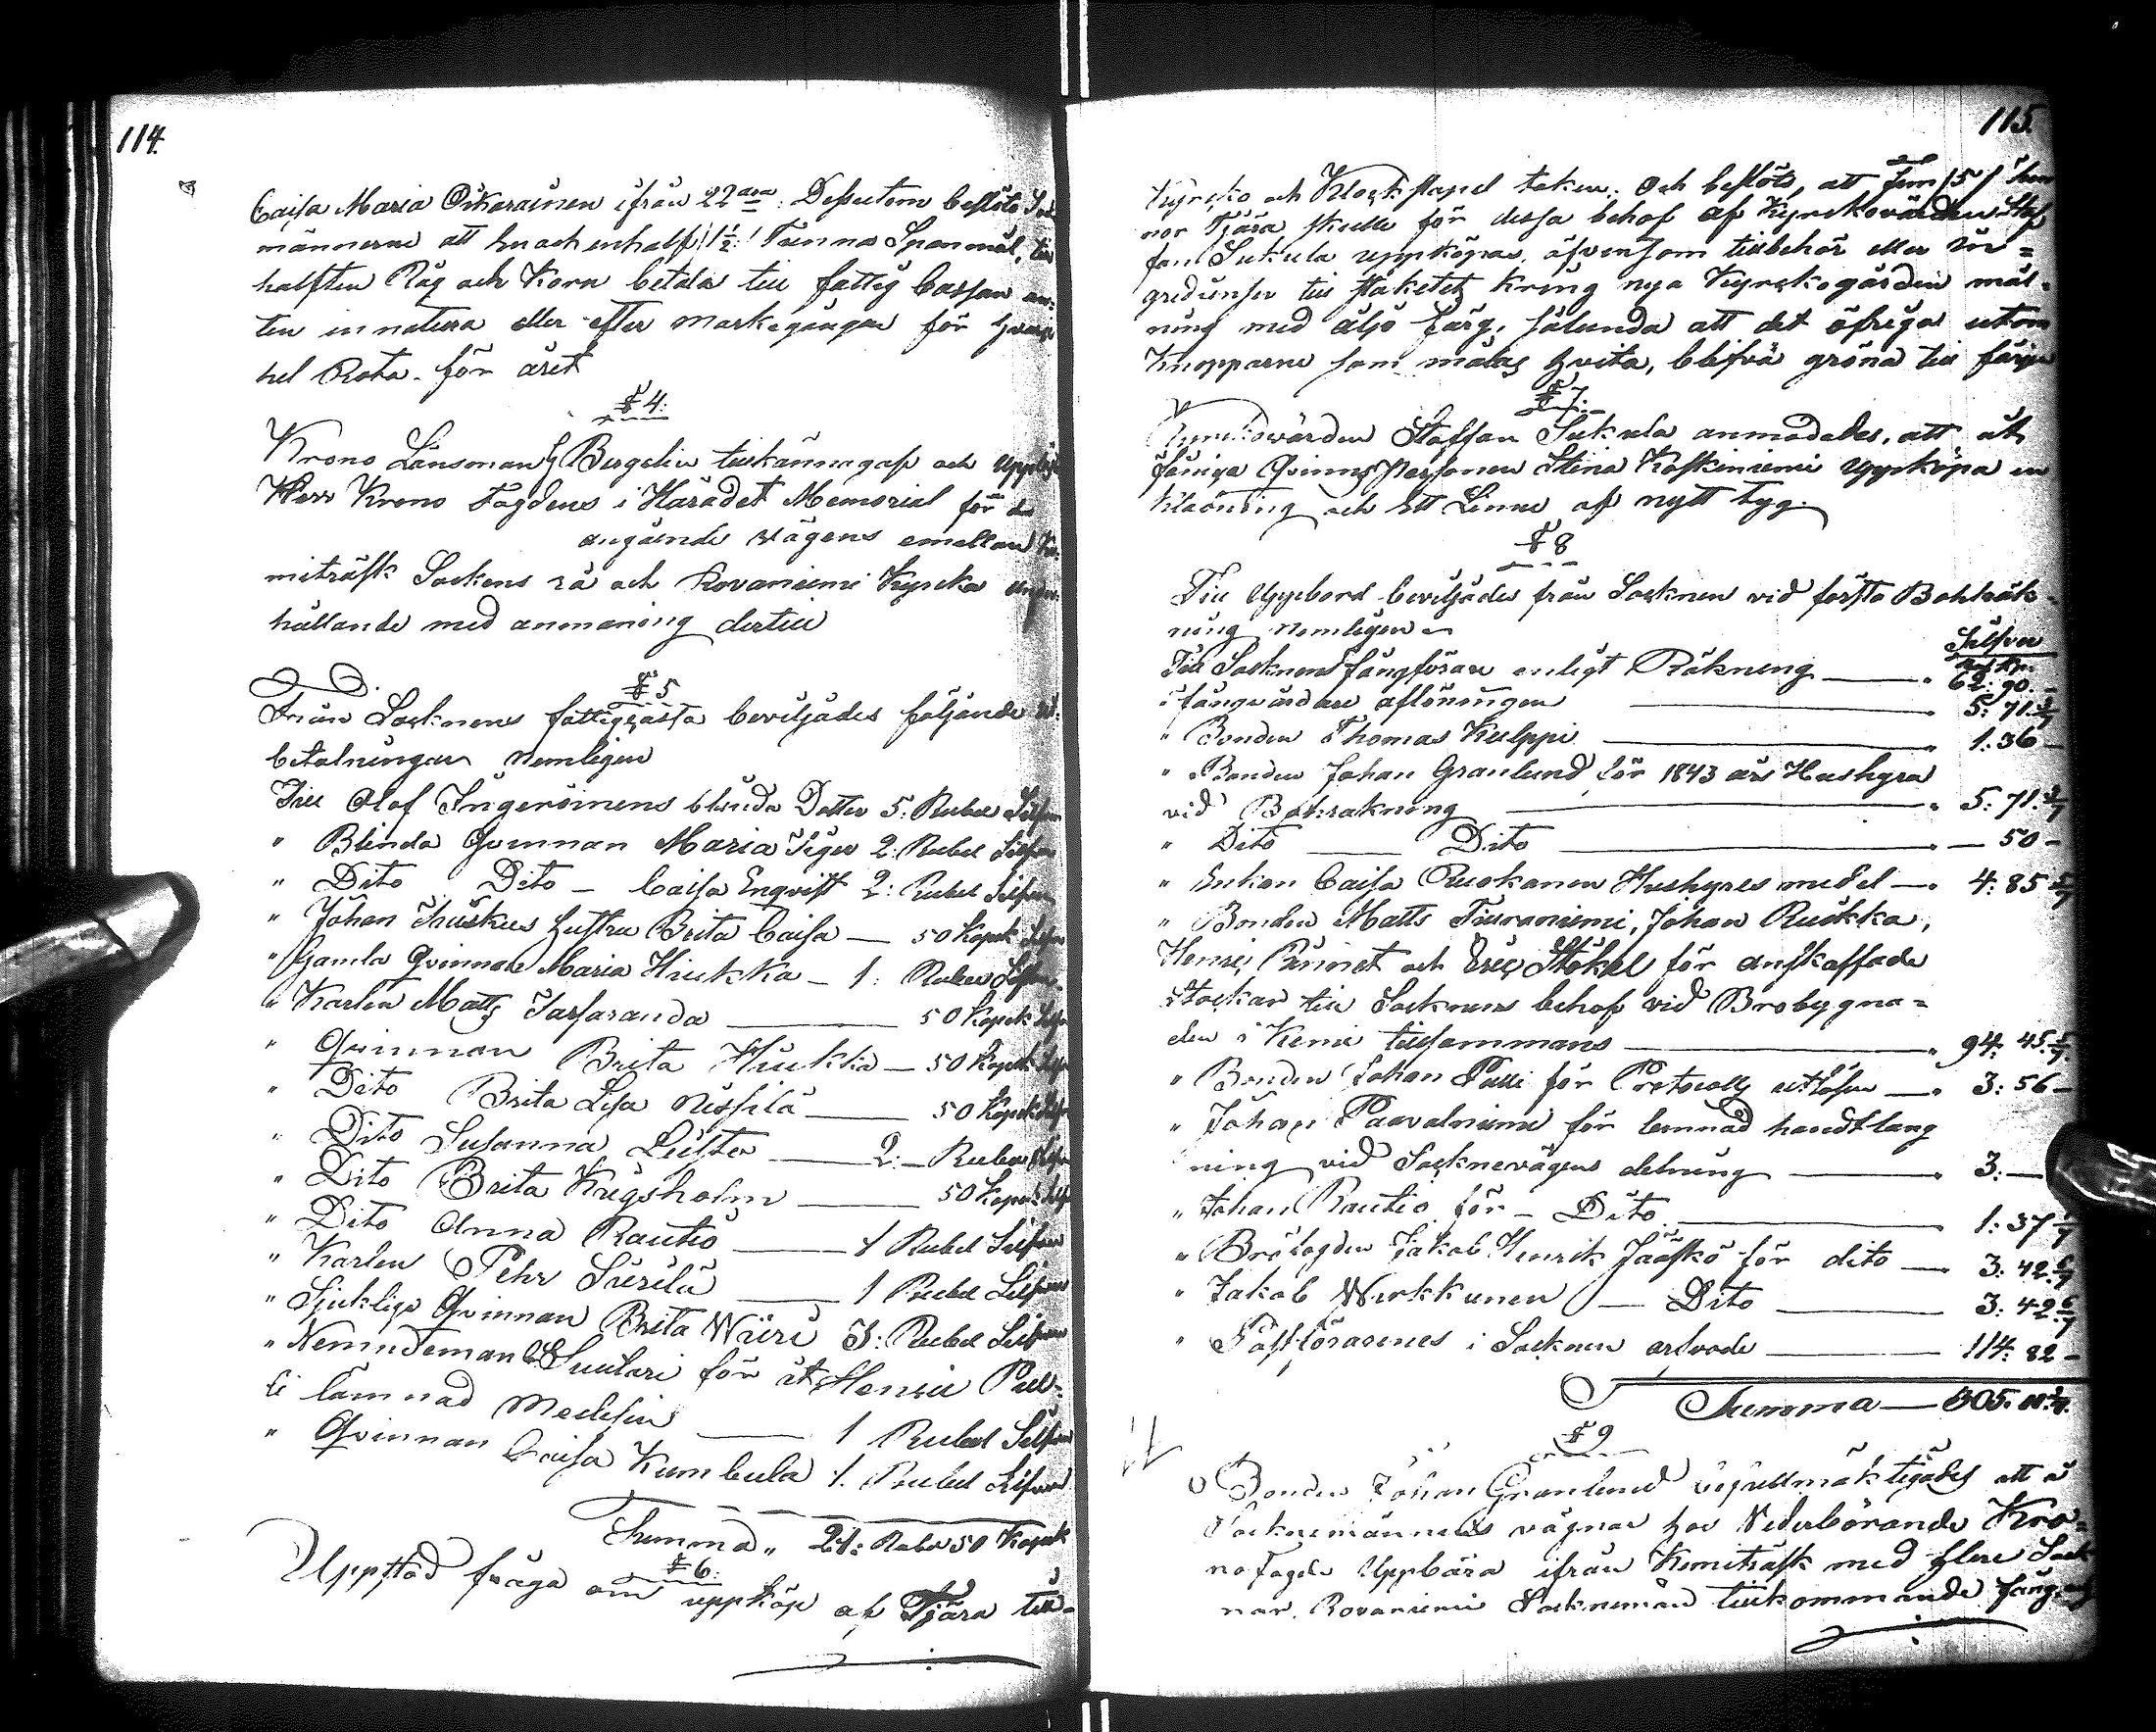 114.
Caisa Maria Oikarainen ifrån 22dra. Dessutom beslöto Sock
männerne att en och en half /1½/ Tunna Spanmål, till
halften Råg och Korn betala till fattig Cassan an-
ten in natura eller efter markegången för hvarje
hel Rota för året
§ 4:
Krono Länsman Bergelin tillkännagaf och uppläste
Herr Krono Fogdens i Häradet Memorial för
angående vägens emellan Ke-
miträsk Sockens rå och Rovaniemi Kyrcka under-
hållande med anmaning dertill
§ 5
Från Socknens fattigcassa beviljades följande ut-
betalningar nemligen
Till Olof Ingeröinens blinda Dotter 5: Rubel Silfver
" Blinda Qvinnan Maria Tiger 2: Rubel Silfver
" Dito Dito – Caisa Enqvist 2: Rubel Silfver
" Johan Kuskus hustru Brita Caisa — 50 Kopek Silfver
" Gamla Qvinnan Maria Hiukka – 1: Rubel Silfver
" Karlen Matts Sassaranda — 50 Kopek Silfver
" Qvinnan Brita Hiukka — 50 Kopek Silfver
" Dito Brita Lisa Nissilä — 50 Kopek Silfver
" Dito Susanna Liisten — 2: – Rubel Silfver
" Dito Brita Krigsholm — 50 Kopek Silfver
" Dito Anna Rautio — 1 Rubel Silfver
" Karlen Pehr Sierilä — 1 Rubel Silfver
" Sjukliga Qvinnan Brita Wiiri 3: Rubel Silfver
" Nemndeman Suutari för åt Henric Pul-
li lämnad Medicin — 1 Rubel Silfver
" Qvinnan Caisa Kumbula 1. Rubel Silfver
Summa " 21: Rubel 50 Kopek
§ 6:
Uppstod fråga om uppköp af Tjära till
115.
Kyrcko och Klockstapel taken. Och beslöts, att fem /5/ tun
nor Tjära skulle för dessa behof af Kyrckovärden Staf
fan Sukula uppköpas, äfvensom tillbehör eller in-
gredienser till staketets kring nya Kyrckogården mål-
ning med oljo färg, sålunda att det öfriga utom
Knopparne som målas hvita, blifva gröna till färgen
§ 7.
Kyrckovärden Staffan Sukula anmodades, att åt
fåniga Qvinns Personen Stina Koskiniemi uppköpa en
Klädning och Ett Linne af nytt tyg.
§ 8
Till Uppbord beviljades från Socknen vid första Bohkräk-
ning nemligen
Silfver
Till Socknens fångförare enligt Räkning — " 62: 90. –
" fångvårdare aflöningen — 5: 71 3/7
" Bonden Thomas Kulppi — " 1: 36 –
" Bonden Johan Granlund för 1843 års Hushyra
vid Bohräkning — " 5: 71. 3/7
" Dito — Dito — " — 50 –
" Enkan Caisa Ruokanen Hushyres medel — " 4: 85 5/7
" Bonden Matts Tiuraniemi, Johan Ruikka,
Henric och Eric för anskaffade
Stockar till Socknens behof vid Brobygna-
den i Kemi tillsammans — " 94: 45. 5/7.
" Bonden Johan Pulli för Protocolls utlösen — " 3: 56 –
" Johan Paavalniemi för lemnad handtlang
ning vid Socknevägens delning — " 3: —
" Johan Rautio för – Dito — 1: 37
" Brofogden Jakob Henrik Jaasko för dito — " 3: 42. 6/7
" Jakob Wirkkunen — Dito — 3: 42 6/7
" Postförarenes i Socknen arfvode — 114: 82 –
Summa — 305.
§ 9
Bonden Johan Granlund befullmäktigades att å
Socknemännens vägnar hos Vederbörande Kro-
nofogde Uppbära ifrån Kemiträsk med flere Sock
nar, Rovaniemi Sockneman tillkommande fång